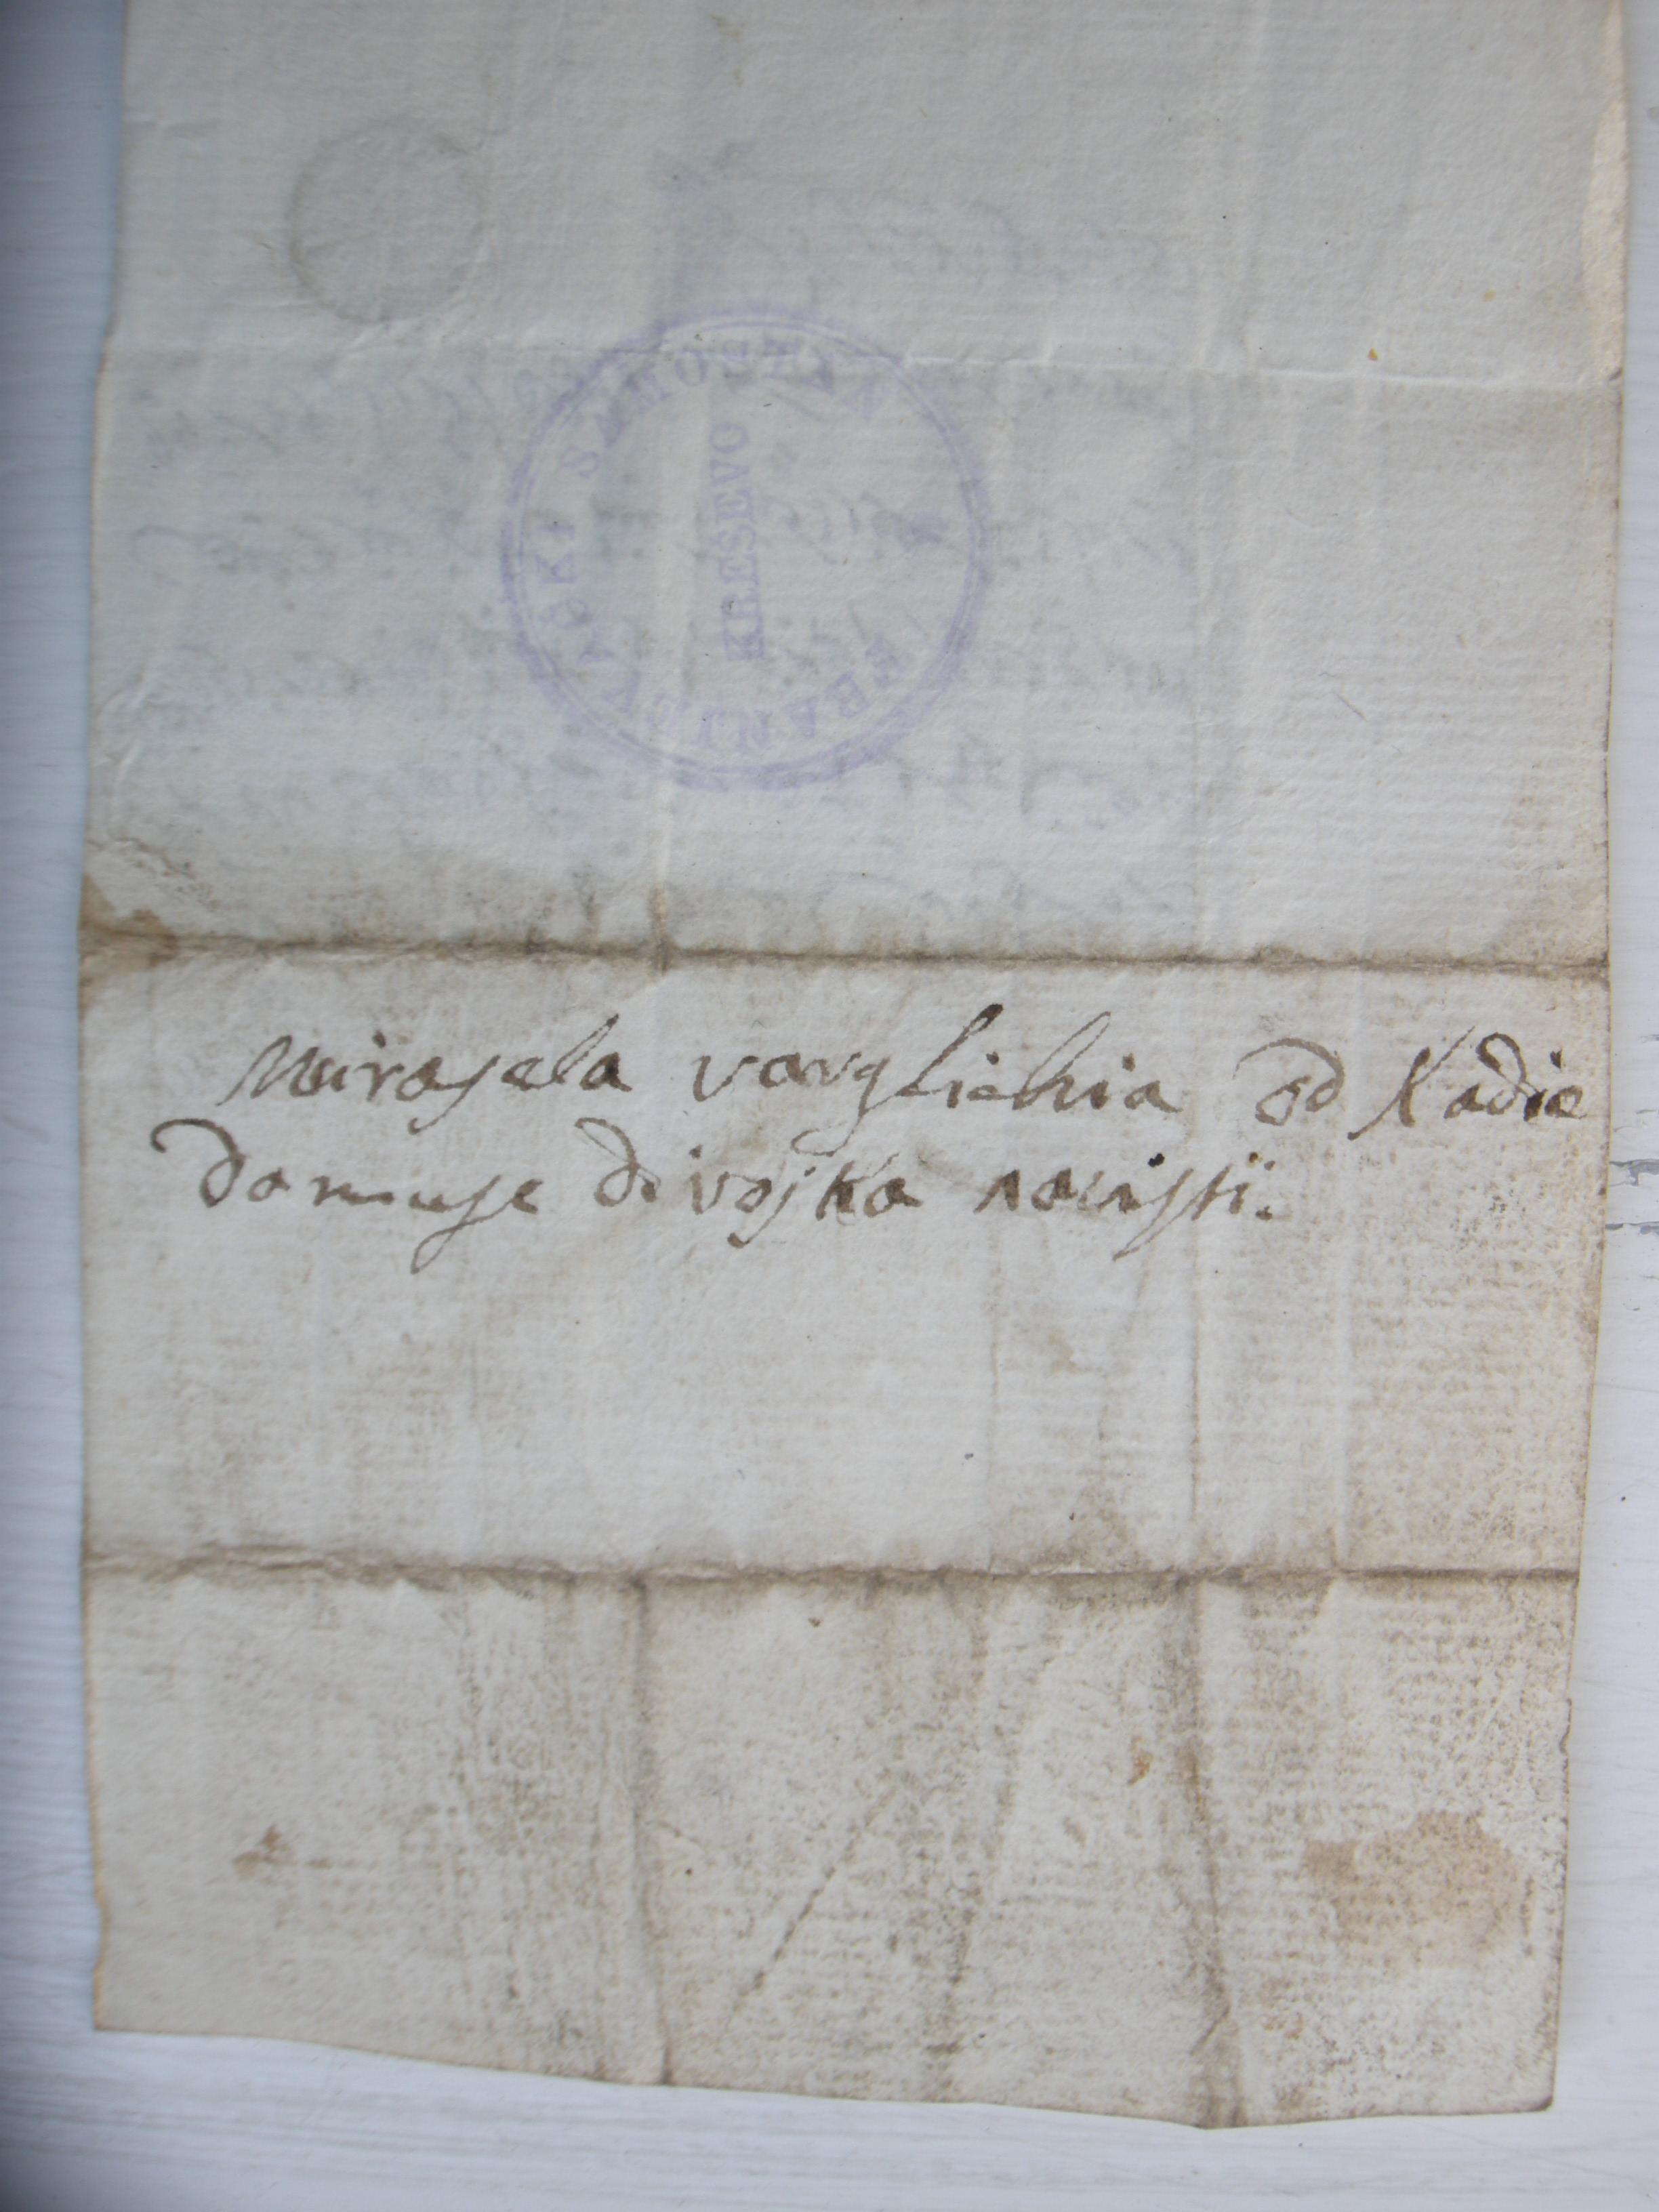 FRANJEVAČKI SAMOSTAN
KREŠEVO
Murasela vavglichia od Kadie
damuse divojka navisti.